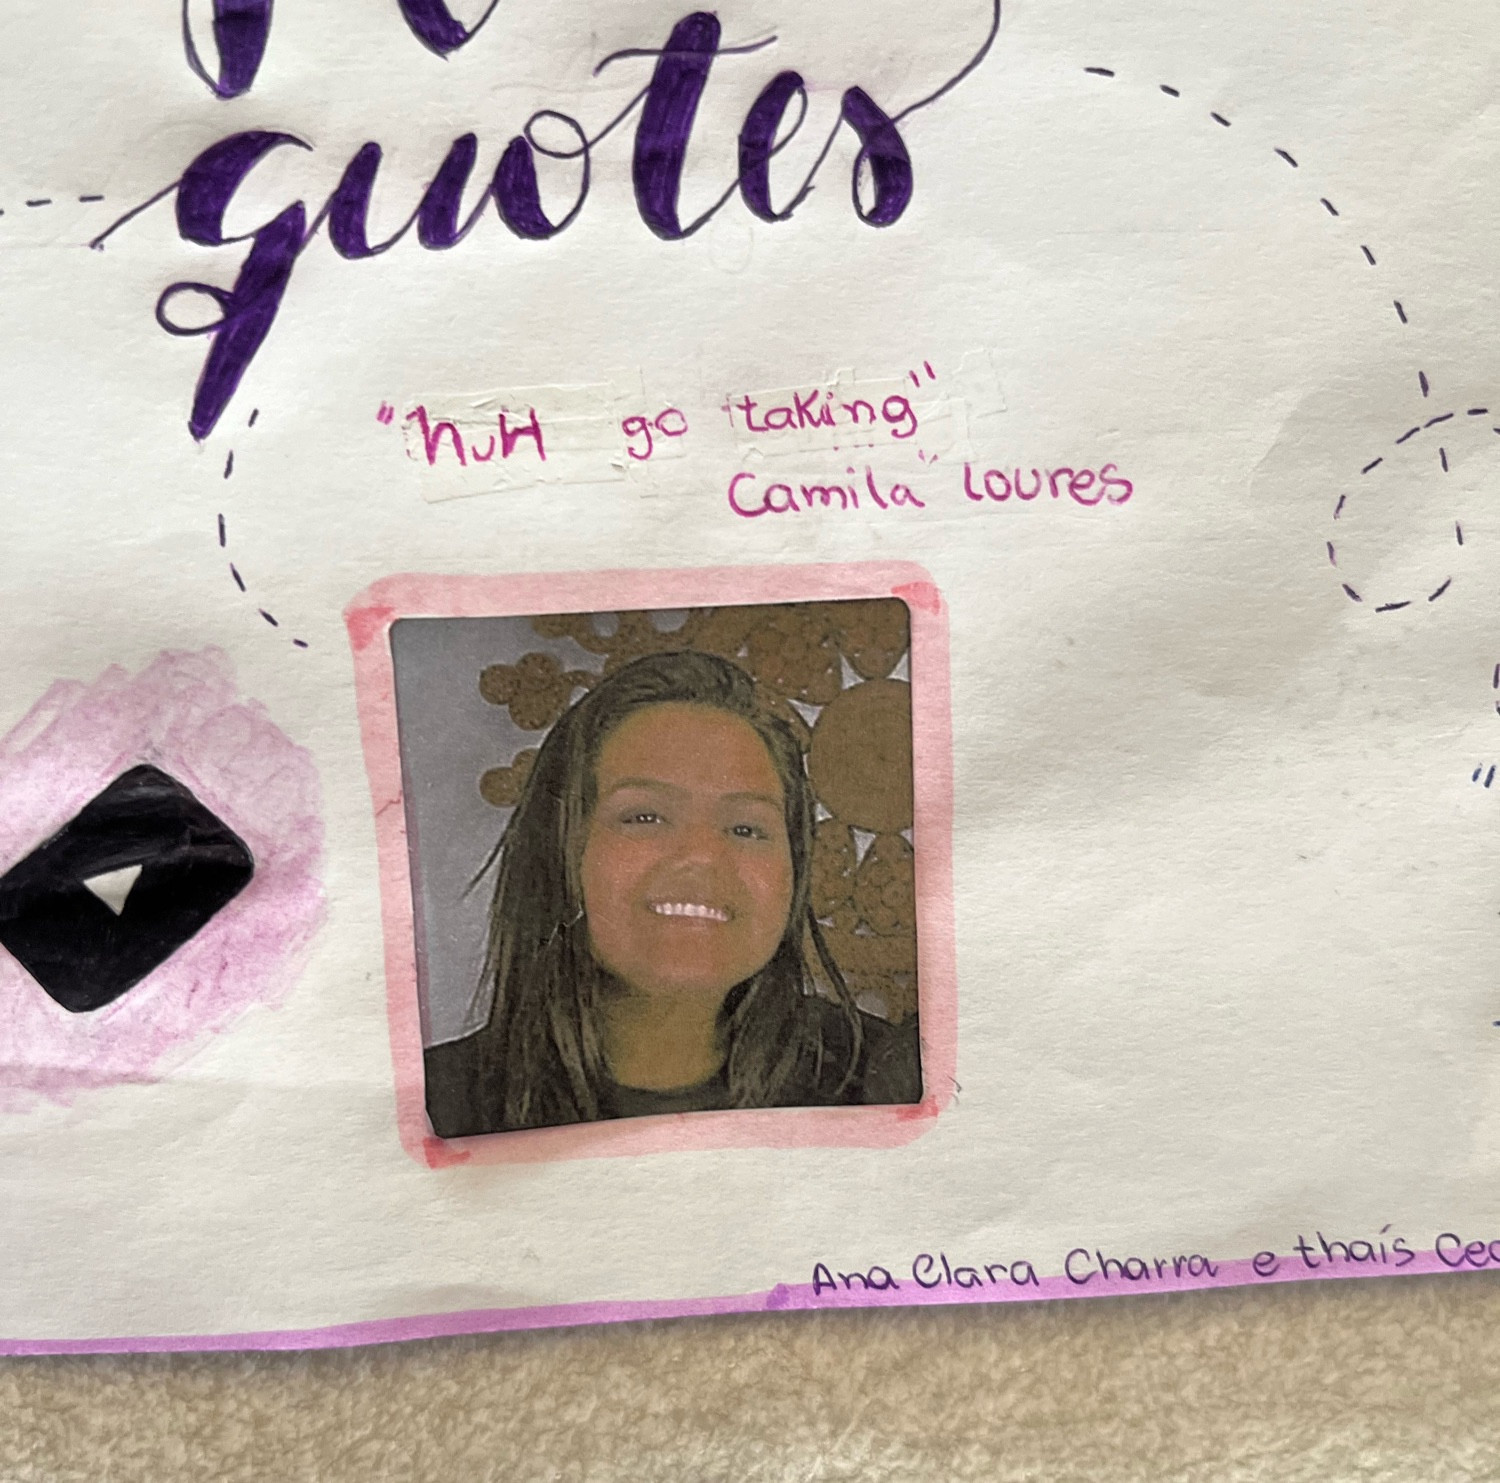 quotes
"NuH go taking"
Camila" loures
Ana Clara Charra e thaís